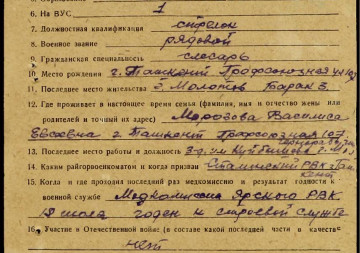 6. На ВУС 1
7. Должностная квалификация стрелок
8. Военное звание рядовой
9. Гражданская специальность слесарь
10. Место рождения г. Ташкент Профсоюзная
11. Последнее место жительства г. Молотов Барак 3
12. Где проживает в настоящее время семья (фамилия, имя и отчество жены или
родителей и точный их адрес) Морозова Василиса
Евсеевна г. Ташкент Профсоюзная 107
13. Последнее место работы и должность З-д им Куйбышева
14. Каким райгорвоенкоматом и когда призван Сталинский РВК г. Таш
кент
15. Когда и где проходил раз медкомиссию и результат годности к
военной службе Медкомиссия Ярского РВК
годен к строевой службе
16. Участие в Отечественной войне (в составе какой последней части и в качестве
нет